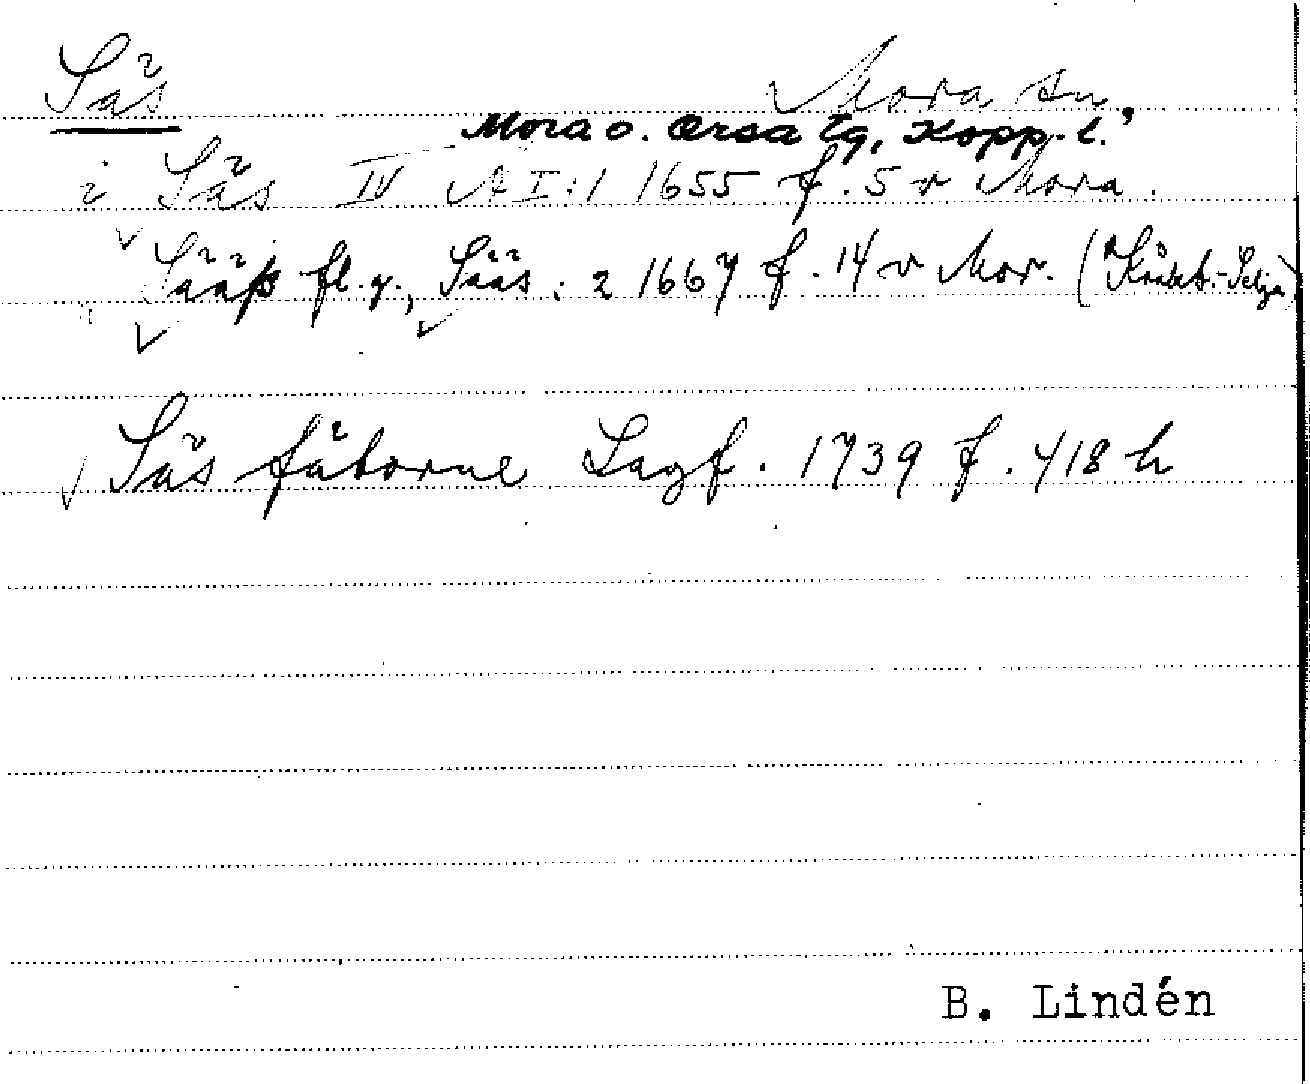 Säs
Mora sn,
Mora o. Orsa tg, Kopp. l.
i Säs IV AI:1 1655 f. 5 v Mora.
Sääß fl. g., Sääs : 2 1667 f. 14 v Mor.
Säs fäborne Lagf. 1739 f. 418 h
B. Lindén